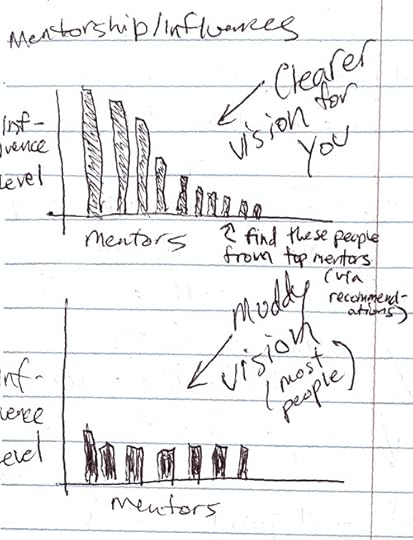 Mentorship/Influences
Clearer
vision for
you
Inf-
uence
level
Mentors
find these people
from top mentors
(via
recommend-
ations)
Muddy
vision
(most
people)
Inf-
uence
evel
Mentors